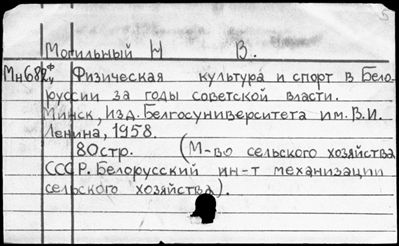 Могильный Н В.
Мн682ф Физическая культура и спорт в Бело-
руссии за годы советской власти.
Минск, Изд. Белгосуниверситета им. В.И.
Ленина, 1958.
80стр. (М-во сельского хозяйства
СССР. Белорусский ин-т механизации
сельского хозяйства).